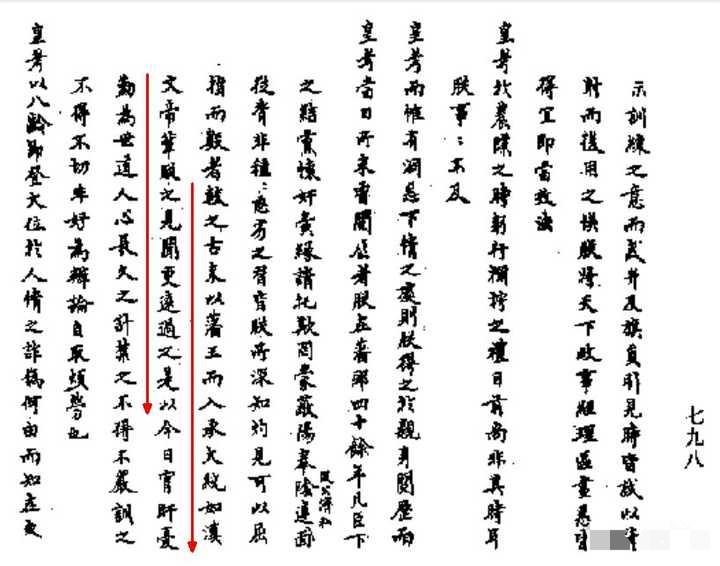 七九八
示訓練之意而或并及旗員引見時皆試以
射而後用之悞朕將天下政事經理區畫悉皆
得宜即當效法
皇考於農隙之時躬行獮狩之禮目前尚非其時耳
朕事〻不及
皇考而惟有洞悉下情之處則朕得之於親身閱歷而
皇考當日所未曾閱歷者朕在藩邸四十餘年凡臣下
之結黨懷奸夤緣請託欺罔蒙蔽陽奉陰違面
假公濟私
從背非種〻惡劣之習皆朕所深知灼見可以屈
指而數者較之古來以藩王而入承大統如漢
文帝輩朕之見聞更遠過之是以今日宵旰憂
勤為世道人心長久之計禁之不得不嚴訓之
不得不切非好為辯論自取煩勞也
皇考以八齡即登大位於人情之詐偽何由而知在